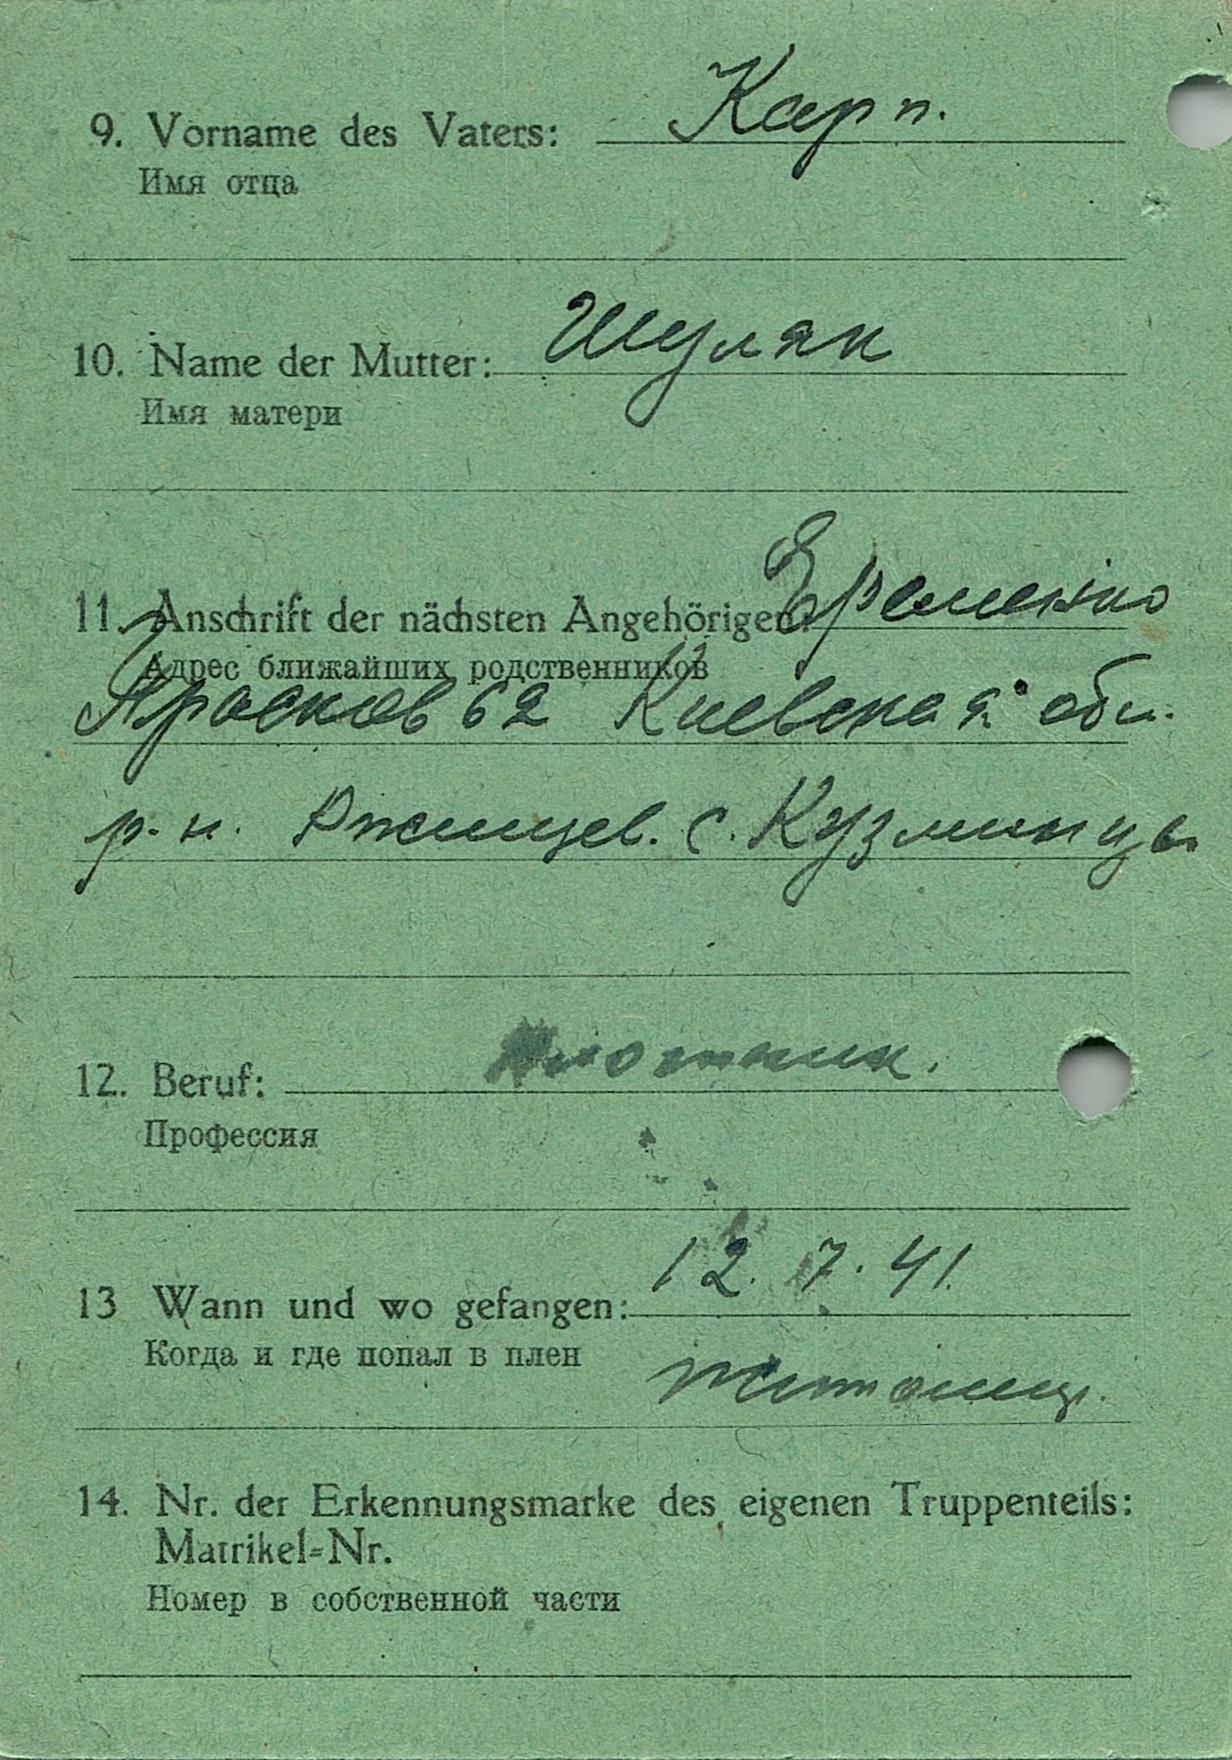 9. Vorname des Vaters: Карп.
Имя отца
10. Name der Mutter: Шуляк
Имя матери
11. Anschrift der nächsten Angehörigen: Еременко
Адрес ближайших родственников
62 Киевская обл.
р.н. Ржищев. с. Кузминцы
12. Beruf: плотник.
Профессия
13 Wann und wo gefangen: 12. 7. 41.
Когда и где попал в плен
14. Nr. der Erkennungsmarke des eigenen Truppenteils:
Matrikel-Nr.
Номер в собственной части